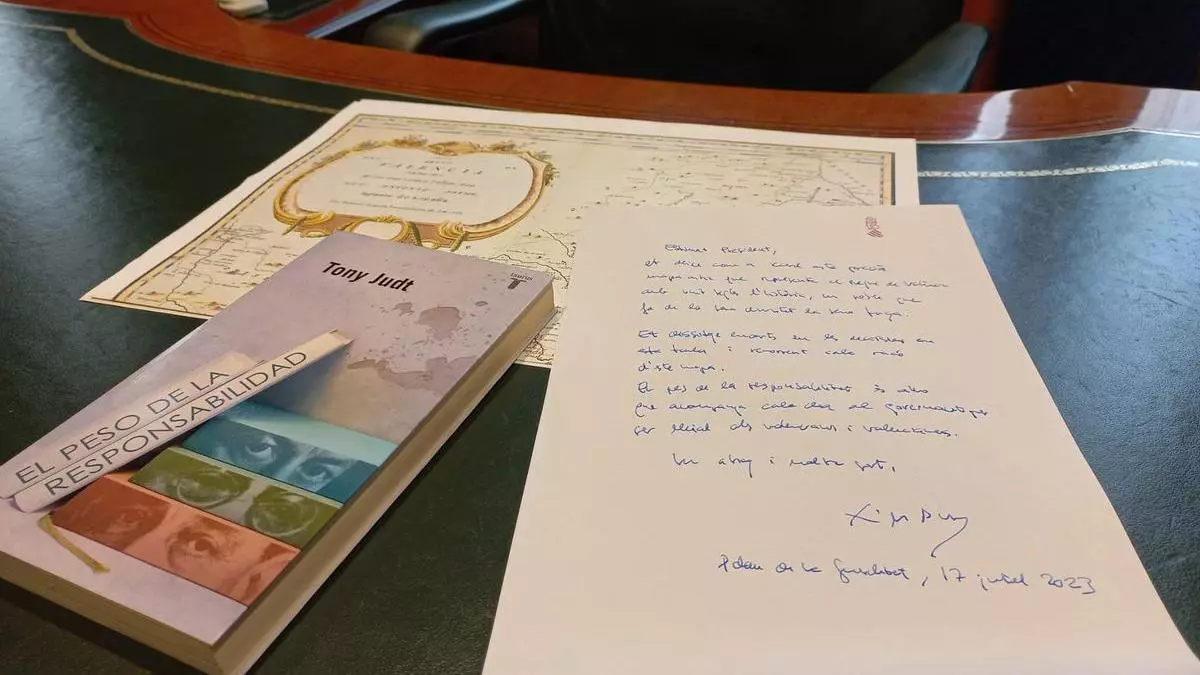 VALENCIA
Tony Judt
taurus
T
EL PESO DE LA
RESPONSABILIDAD
Estimat President,
et deixe com a record este preciós
mapa antic que representa el Regne de València
amb vuit segles d'història, un poble que
fa de la seua diversitat la seua força.
Et desitge encerts en les decisions en
esta taula i recorrent cada racó
d'este mapa.
El pes de la responsabilitat és allò
que acompanya cada dia al governant per
ser lleial als valencians i valencianes.
Una abraç i molta sort,
Ximo Puig
Palau de la Generalitat, 17 juliol 2023